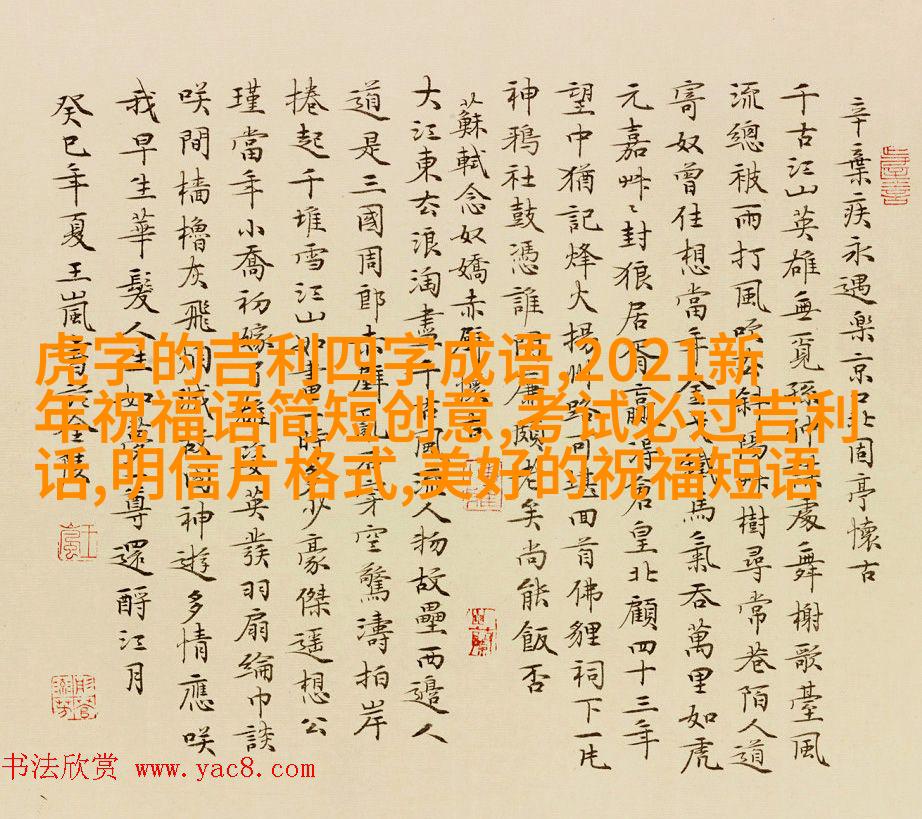 辛棄疾永遇樂京口北固亭懷古
千古江山英雄無覓孫仲謀處舞榭歌臺風
流總被雨打風吹去斜陽草樹尋常巷陌人道
寄奴曾住想當年金戈鐵馬氣吞萬里如虎
元嘉艸〻封狼居胥贏得倉皇北顧四十三年
望中猶記烽火揚州路可堪回首佛貍祠下一片
神鴉社鼓憑誰問廉頗老矣尚能飯否
蘇軾念奴嬌赤壁懷古
大江東去浪淘盡千古風流人物故壘西邊人
道是三國周郎赤壁亂石穿空驚濤拍岸
捲起千堆雪江山如畫一時多少豪傑遥想公
瑾當年小喬初嫁了雄姿英發羽扇綸巾談
咲間檣櫓灰飛烟滅故國神遊多情應咲
我早生華髮人生如夢一尊還酹江月
癸巳年夏王嵐書於金陵
虎字的吉利四字成语,2021新
年祝福语简短创意,考试必过吉利
话,明信片格式,美好的祝福短语
书法欣赏 www.yac8.com